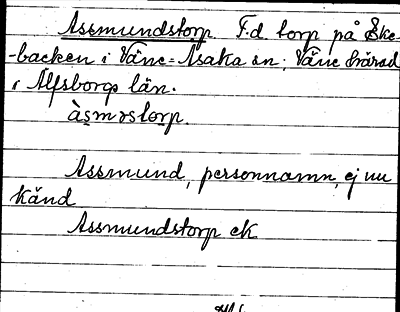 Assmundstorp F.d torp på Ske-
-backen i Väne=Åsaka sn; Väne härad
i Älfsborgs län.
àsməstorp.
Assmund, personnamn, ej nu
känd
Assmundstorp ek